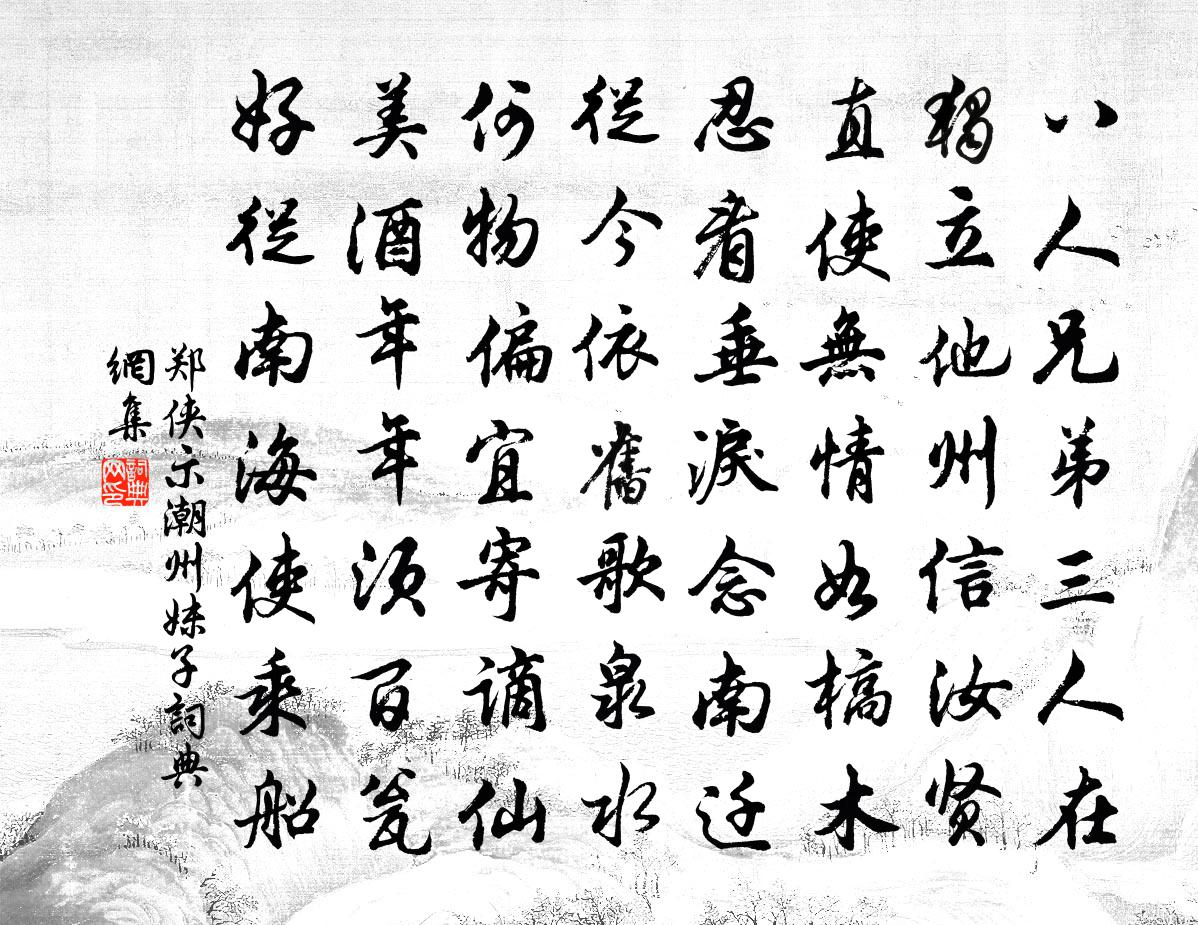 八人兄弟三人在
獨立他州信汝贤
直使無情如槁木
忍看垂淚念南迁
從今依舊歌泉水
何物偏宜寄謫仙
美酒年年須百瓮
好從南海使乘船
郑侠示潮州妹子詞典
網集
詞典